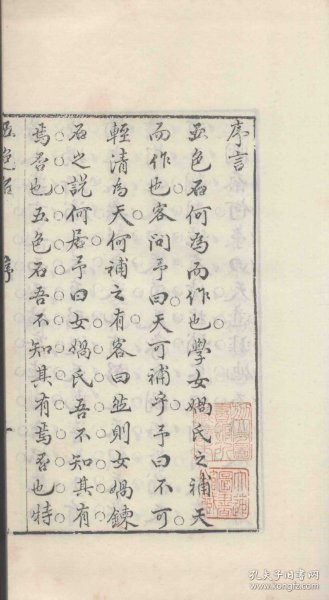 序言
五色石何為而作也學女媧氏之補天
而作也客問予曰天可補乎予曰不可
輕清為天何補之有客曰然則女媧鍊
石之說何居予曰女媧氏吾不知其有
焉否也五色石吾不知其有焉否也特
五色石 序 一
孔夫子旧书网